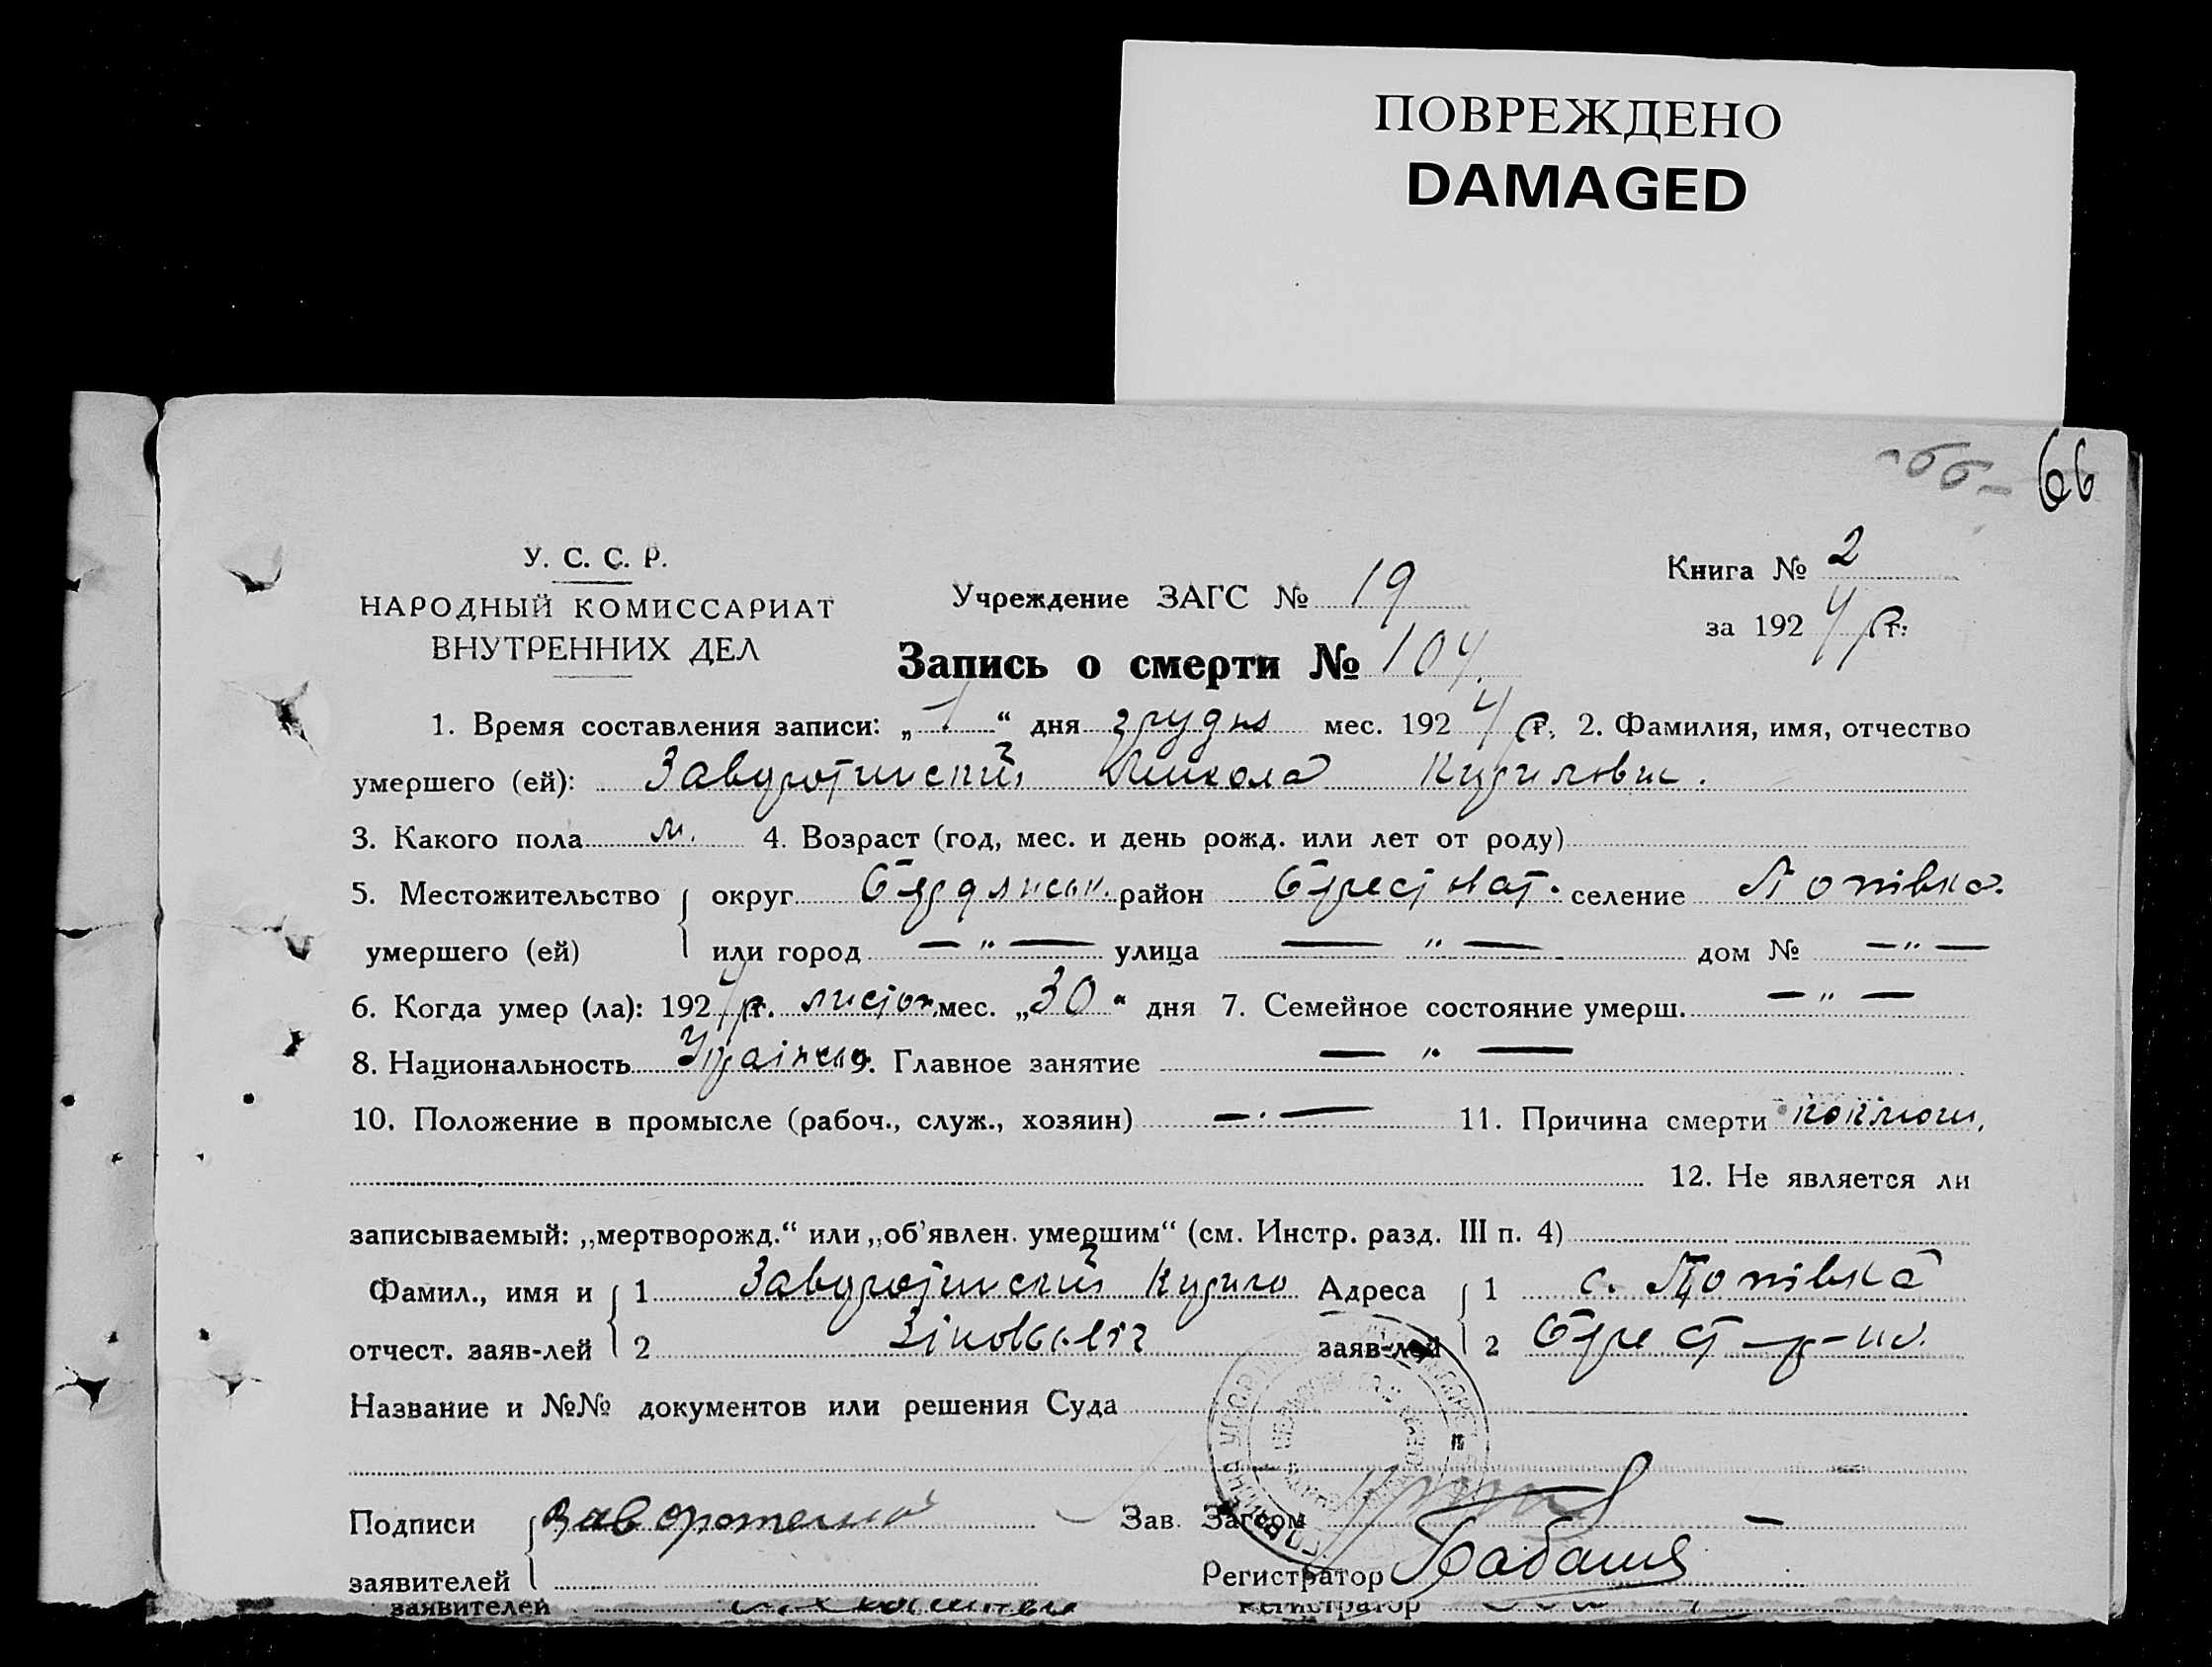 ПОВРЕЖДЕНО
DAMAGED
-66- 66
У. С. С. Р.
НАРОДНЫЙ КОМИССАРИАТ
ВНУТРЕННИХ ДЕЛ
Учреждение ЗАГС № 19
Книга № 2
за 1924 р.
Запись о смерти № 104.
1. Время составления записи: „ 1 “ дня грудня мес. 1924 р. 2. Фамилия, имя, отчество
умершего (ей): Микола Кирилович.
3. Какого пола м. 4. Возраст (год, мес. и день рожд. или лет от роду)
5. Местожительство округ район селение Попівка.
умершего (ей) или город — " — улица — " — дом № — " —
6. Когда умер (ла): 1924 р. листоп. мес. „ 30 “ дня 7. Семейное состояние умерш. — " —
8. Национальность 9. Главное занятие — " —
10. Положение в промысле (рабоч., служ., хозяин) — . — 11. Причина смерти коклюш.
12. Не является ли
записываемый: „мертворожд.“ или „об’явлен. умершим“ (см. Инстр. разд. III п. 4)
Фамил., имя и 1 Кирило Адреса 1 с. Попівка
отчест. заяв-лей 2 заяв-лей 2
Название и №№ документов или решения Суда
Подписи Зав. Загсом
заявителей Регистратор
заявителей Регистратор